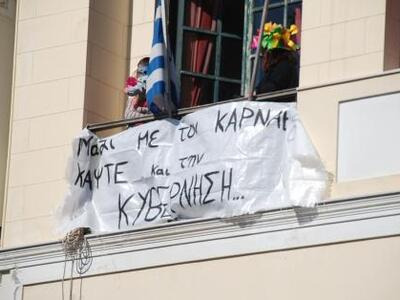 Μαζι ΜΕ τον ΚΑΡΝΑΒ
ΚΑΨΤΕ και την
ΚΥΒΕΡΝΗΣΗ...